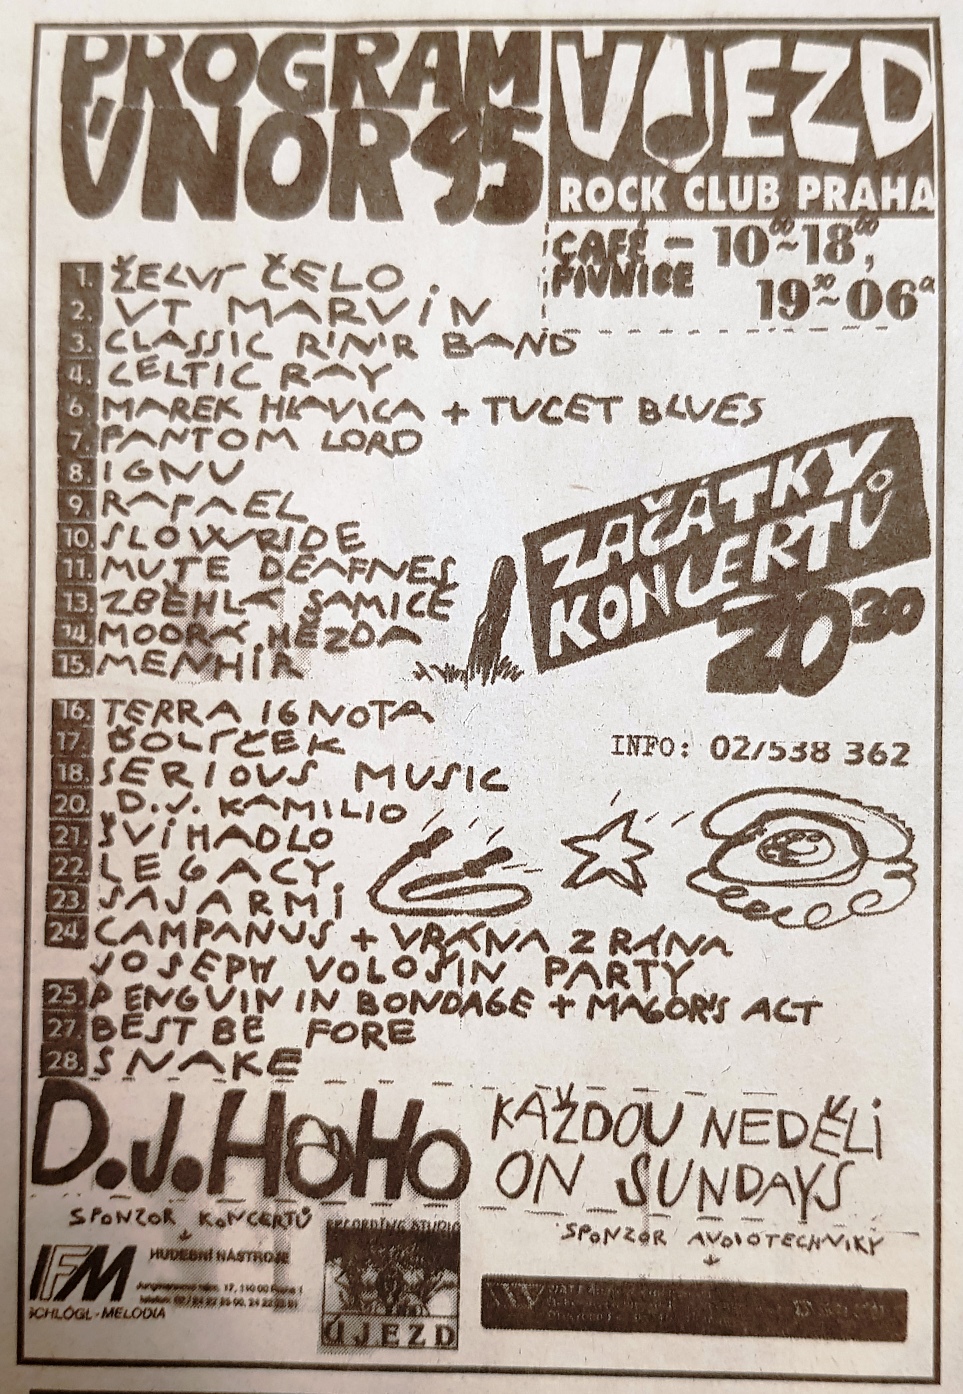 PROGRAM
ÚNOR 95
ÚJEZD
ROCK CLUB PRAHA
CAFÉ – 10⁰⁰~18⁰⁰,
PIVNICE 19³⁰~06
1. ŽELVÍ ČELO
2. VT MARVIN
3. CLASSIC R'N'R BAND
4. CELTIC RAY
6. MAREK HLAVICA + TUCET BLUES
7. FANTOM LORD
8. IGNU
9. RAPAEL
10. SLOWRIDE
11. MUTE DEAFNES
13. ZBĚHLÁ SAMICE
14. MODRÁ HĚZDA
15. MENHIR
ZAČÁTKY
KONCERTŮ
20³⁰
16. TERRA IGNOTA
17. BOLÍČEK
18. SERIOUS MUSIC
20. D.J. KAMILIO
21. ŠVIHADLO
22. LEGACY
23. SAJARMI
24. CAMPANUS + VRÁNA Z RÁNA
JOSEPH VOLOŠIN PARTY
25. PENGUIN IN BONDAGE + MAGOR'S ACT
27. BEST BE FORE
28. SNAKE
INFO: 02/538 362
D.J. HoHo
KAŽDOU NEDĚLI
ON SUNDAYS
SPONZOR KONCERTŮ
IFM
HUDEBNÍ NÁSTROJE
SCHLÖGL-MELODIA
RECORDING STUDIO
ÚJEZD
SPONZOR AUDIOTECHNIKY